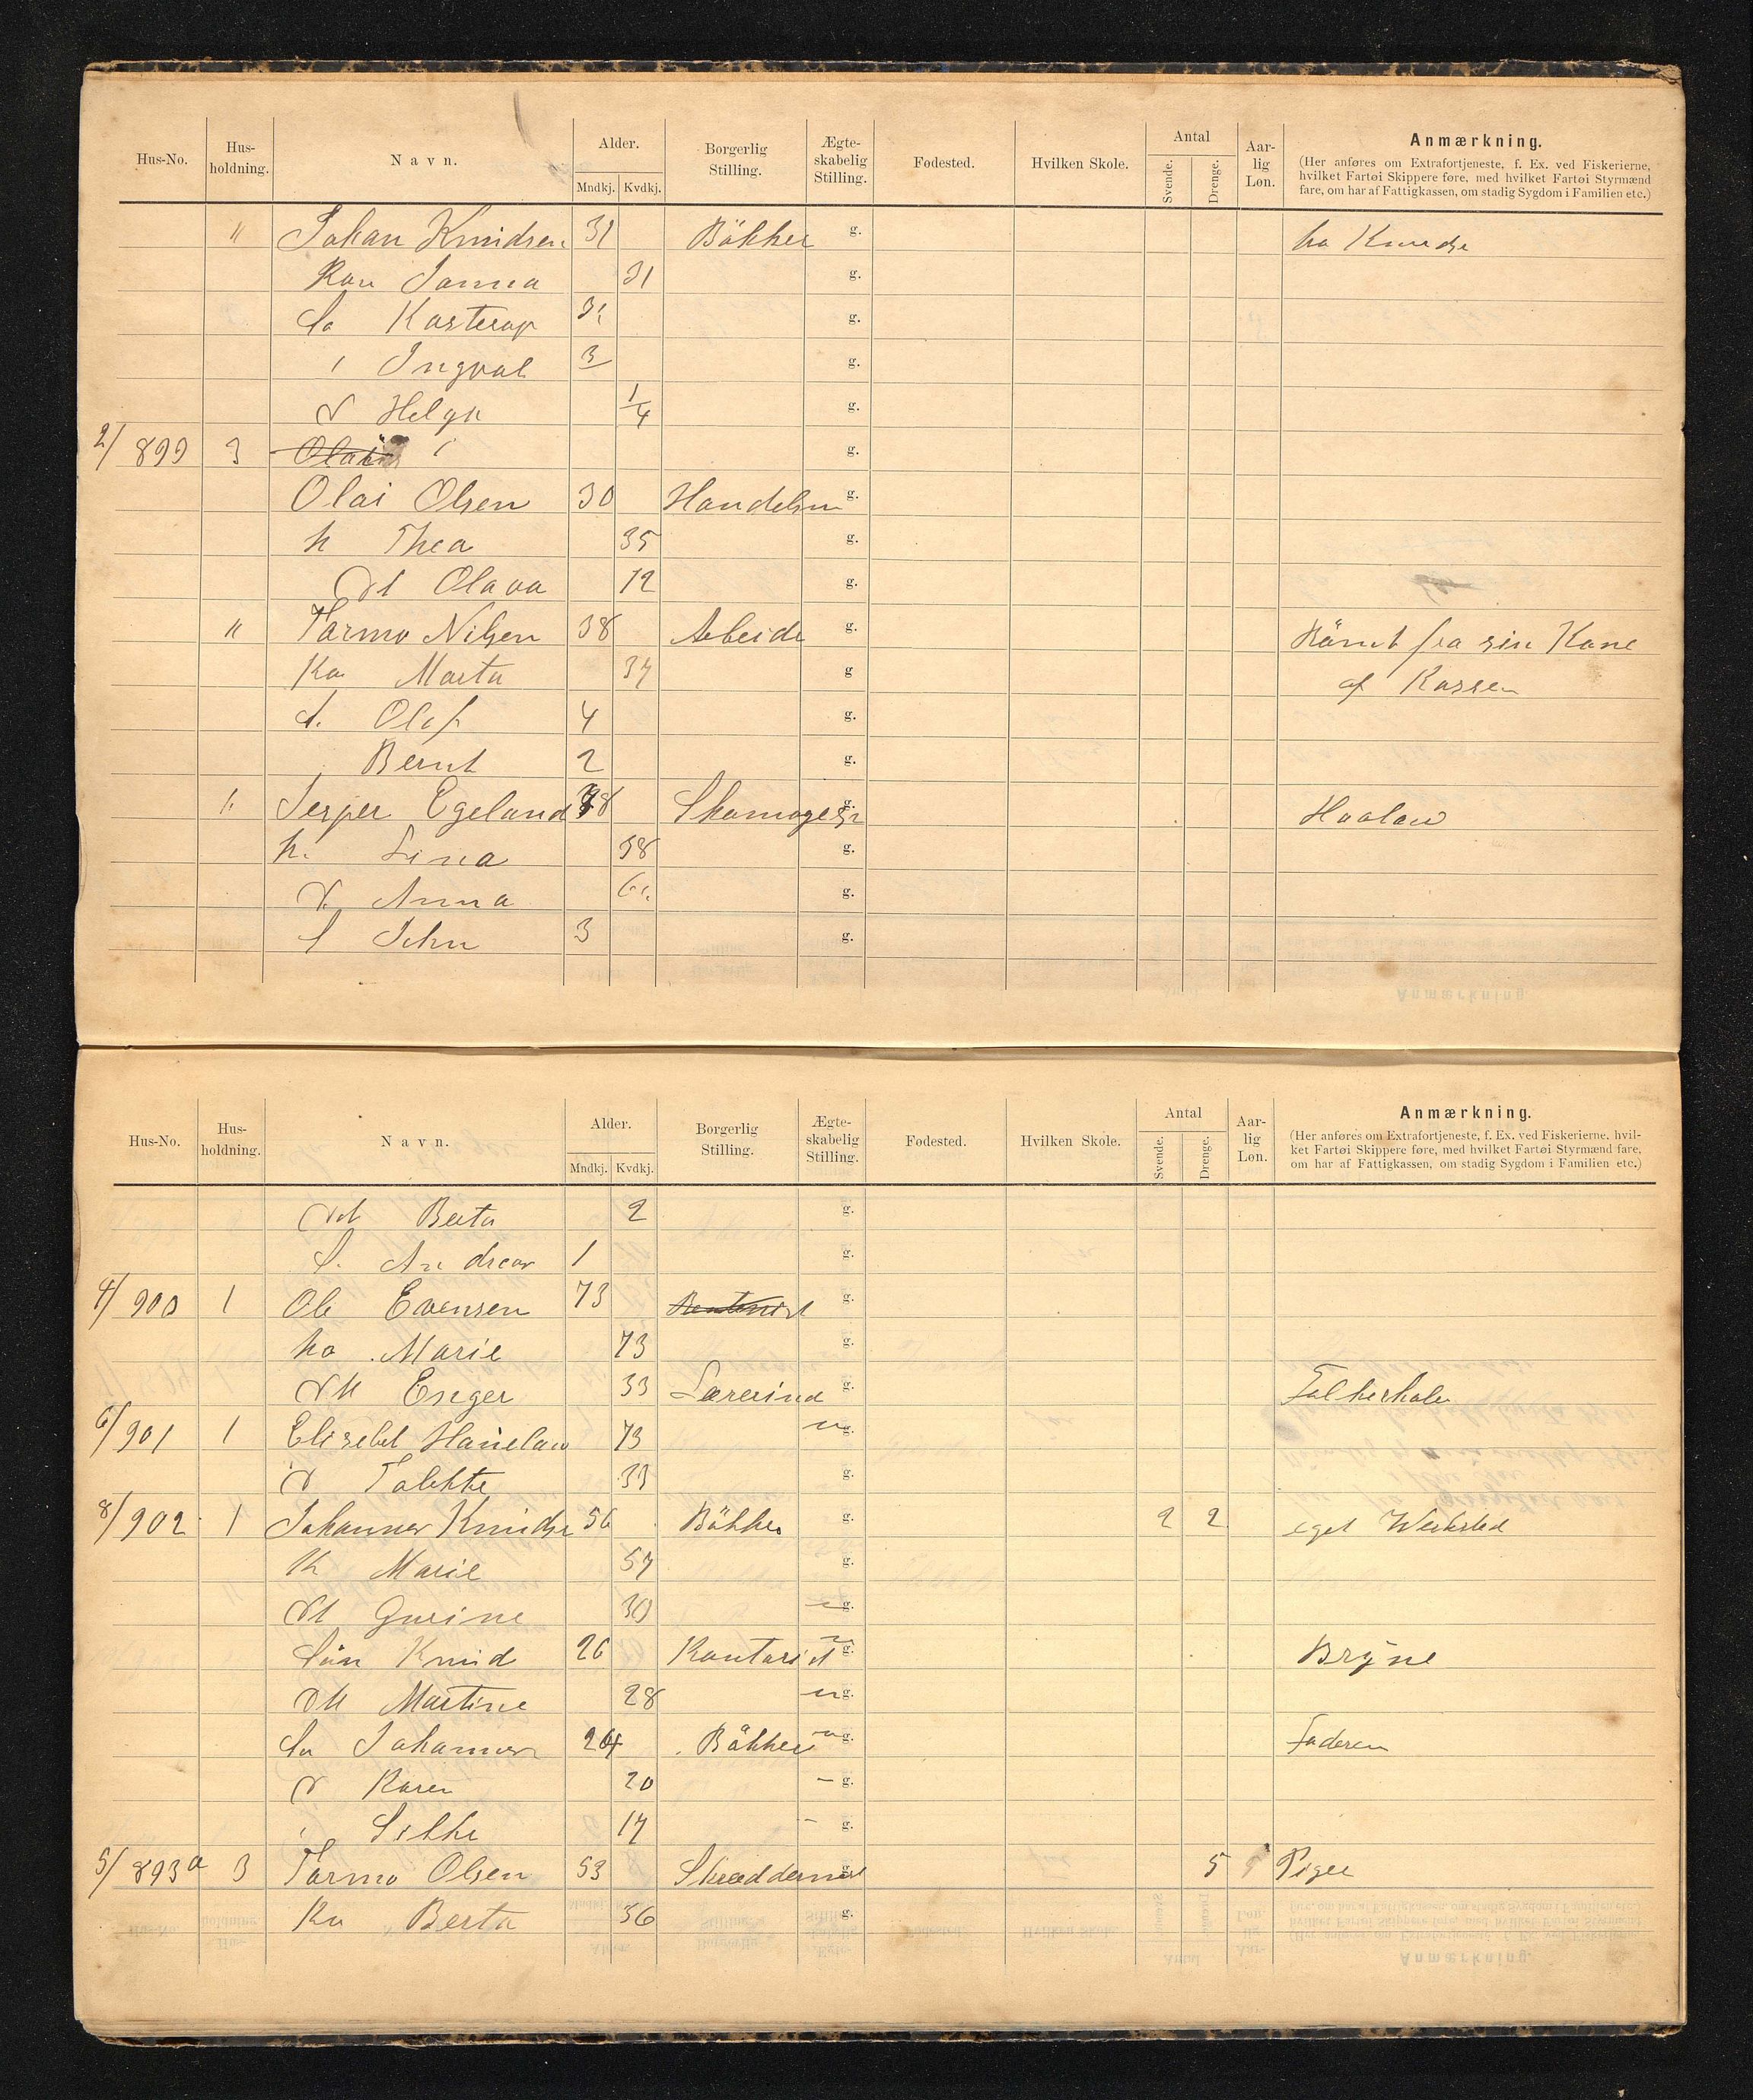 Hus-No. Hus-holdning. Navn. Alder. Mndkj. Kvdkj. Borgerlig Stilling. Ægte-skabelig Stilling. Fødested. Hvilken Skole. Antal Svende. Drenge. Aar-lig Løn. Anmærkning.
(Her anføres om Extrafortjeneste, f. Ex. ved Fiskerierne,
hvilket Fartøi Skippere føre, med hvilket Fartøi Styrmænd
fare, om har af Fattigkassen, om stadig Sygdom i Familien etc.)
" Johan Knudsen 31 Bökker g.
Kon Janna 31 g.
So Kasterup g.
Ingval 3 g.
d Helga 1/4 g.
2/ 899 3 Olai g.
Olai Olsen 30 Handelsm g.
h Thea 35 g.
dt Olava 12 g.
" Tormo Nilsen 38 Arbeide g. Römt fra sin Kone
Ko Marta 37 g af Kassen
s. Olaf 4 g.
Bernt 2 g.
" Jesper Egeland 38 Skomager g.
h. Lina 38 g.
d. Anna g.
S John 3 g.
Hus-No. Hus-holdning. Navn. Alder. Mndkj. Kvdkj. Borgerlig Stilling. Ægte-skabelig Stilling. Fødested. Hvilken Skole. Antal Svende. Drenge. Aar-lig Løn. Anmærkning.
(Her anføres om Extrafortjeneste, f. Ex. ved Fiskerierne, hvil-
ket Fartøi Skippere føre, med hvilket Fartøi Styrmænd fare,
om har af Fattigkassen, om stadig Sygdom i Familien etc.)
dt Berta 2 g.
S. Andreas 1 g.
4/ 900 1 Ole Evensen 73 Rentenist g.
ko Marie 73 g.
dtt Enger 33 Lærerind g. Folkeskole
6/ 901 1 Elisebet 73 g.
d Tolekke 33 g.
8/ 902 1 Johannes Knudse 56 Bökker g. 2 2 eget Werksted
K Marie 57 g.
dt Gurine 30 g.
Sön Knud 26 Kontorist g. Bryne
dtt Martine 28 u g.
So Johannes 24 Bökker u g. Faderen
d Karen 20 - g.
Silke 17 - g.
5/ 893a 3 Tormo Olsen 53 Skræddermst g. 5 Piger
Ko Berta 56 g.